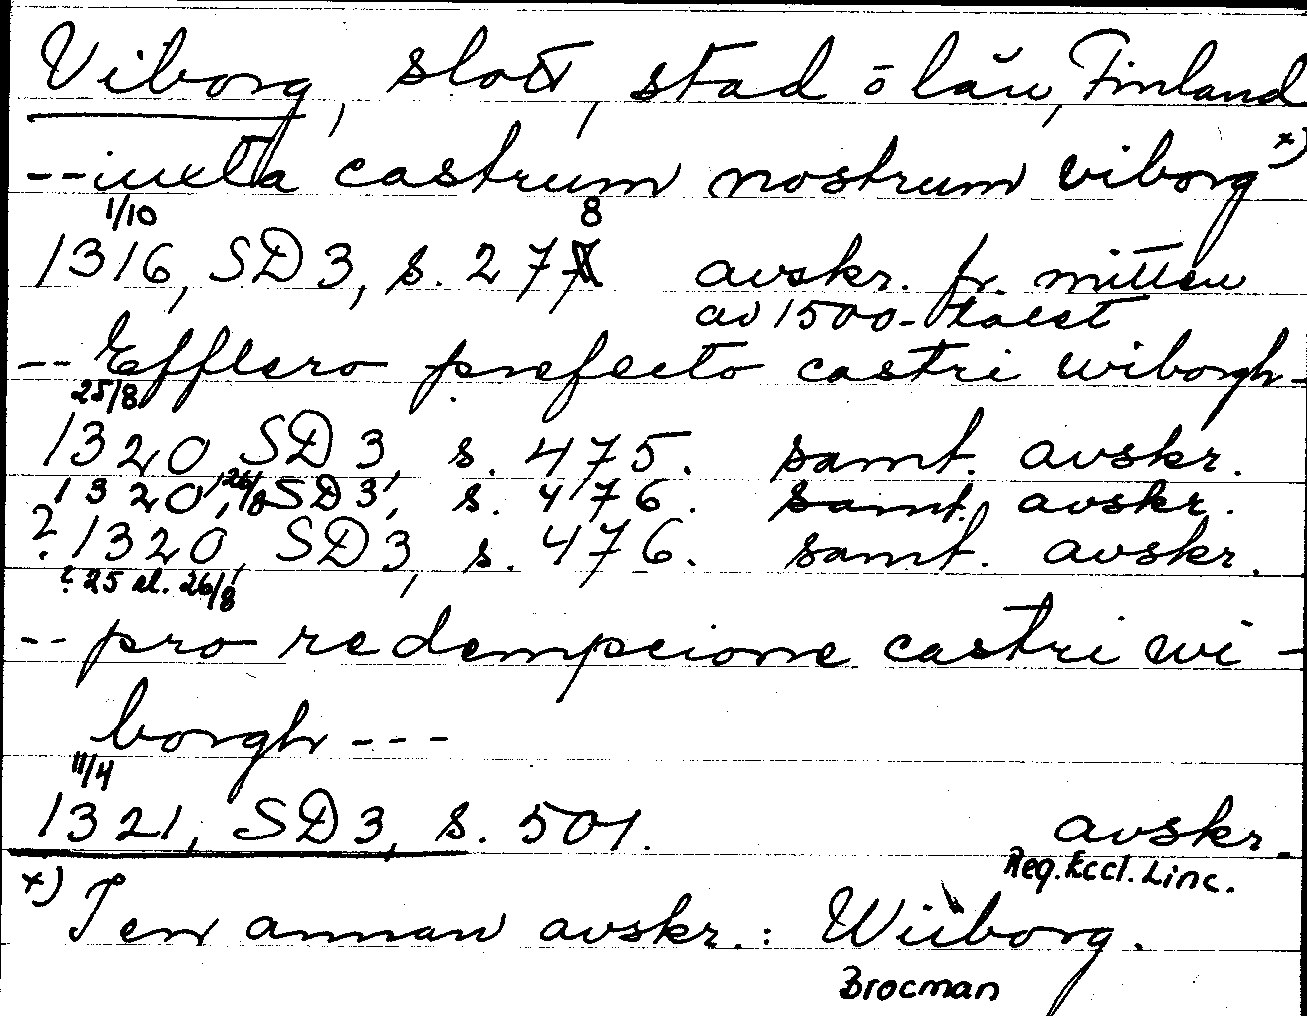 Viborg, slott, stad o län, Finland
--iuxta castrum nostrum viborg x)
1/10 8
1316, SD 3, s. 277 avskr. fr. mitten
av 1500-talet
-- Efflero prefecto castri wiborgh-
25/8
1320 SD 3, s. 475. samt. avskr.
1320, 26/8 SD 3, s. 476. samt. avskr.
? 1320, SD 3, s. 476. samt. avskr.
? 25 el. 26/8
-- pro redempcione castri wi-
borgh ---
11/4
1321, SD 3, s. 501. avskr.
Reg. Eccl. Linc.
x) I en annan avskr.: Wiiborg.
Brocman